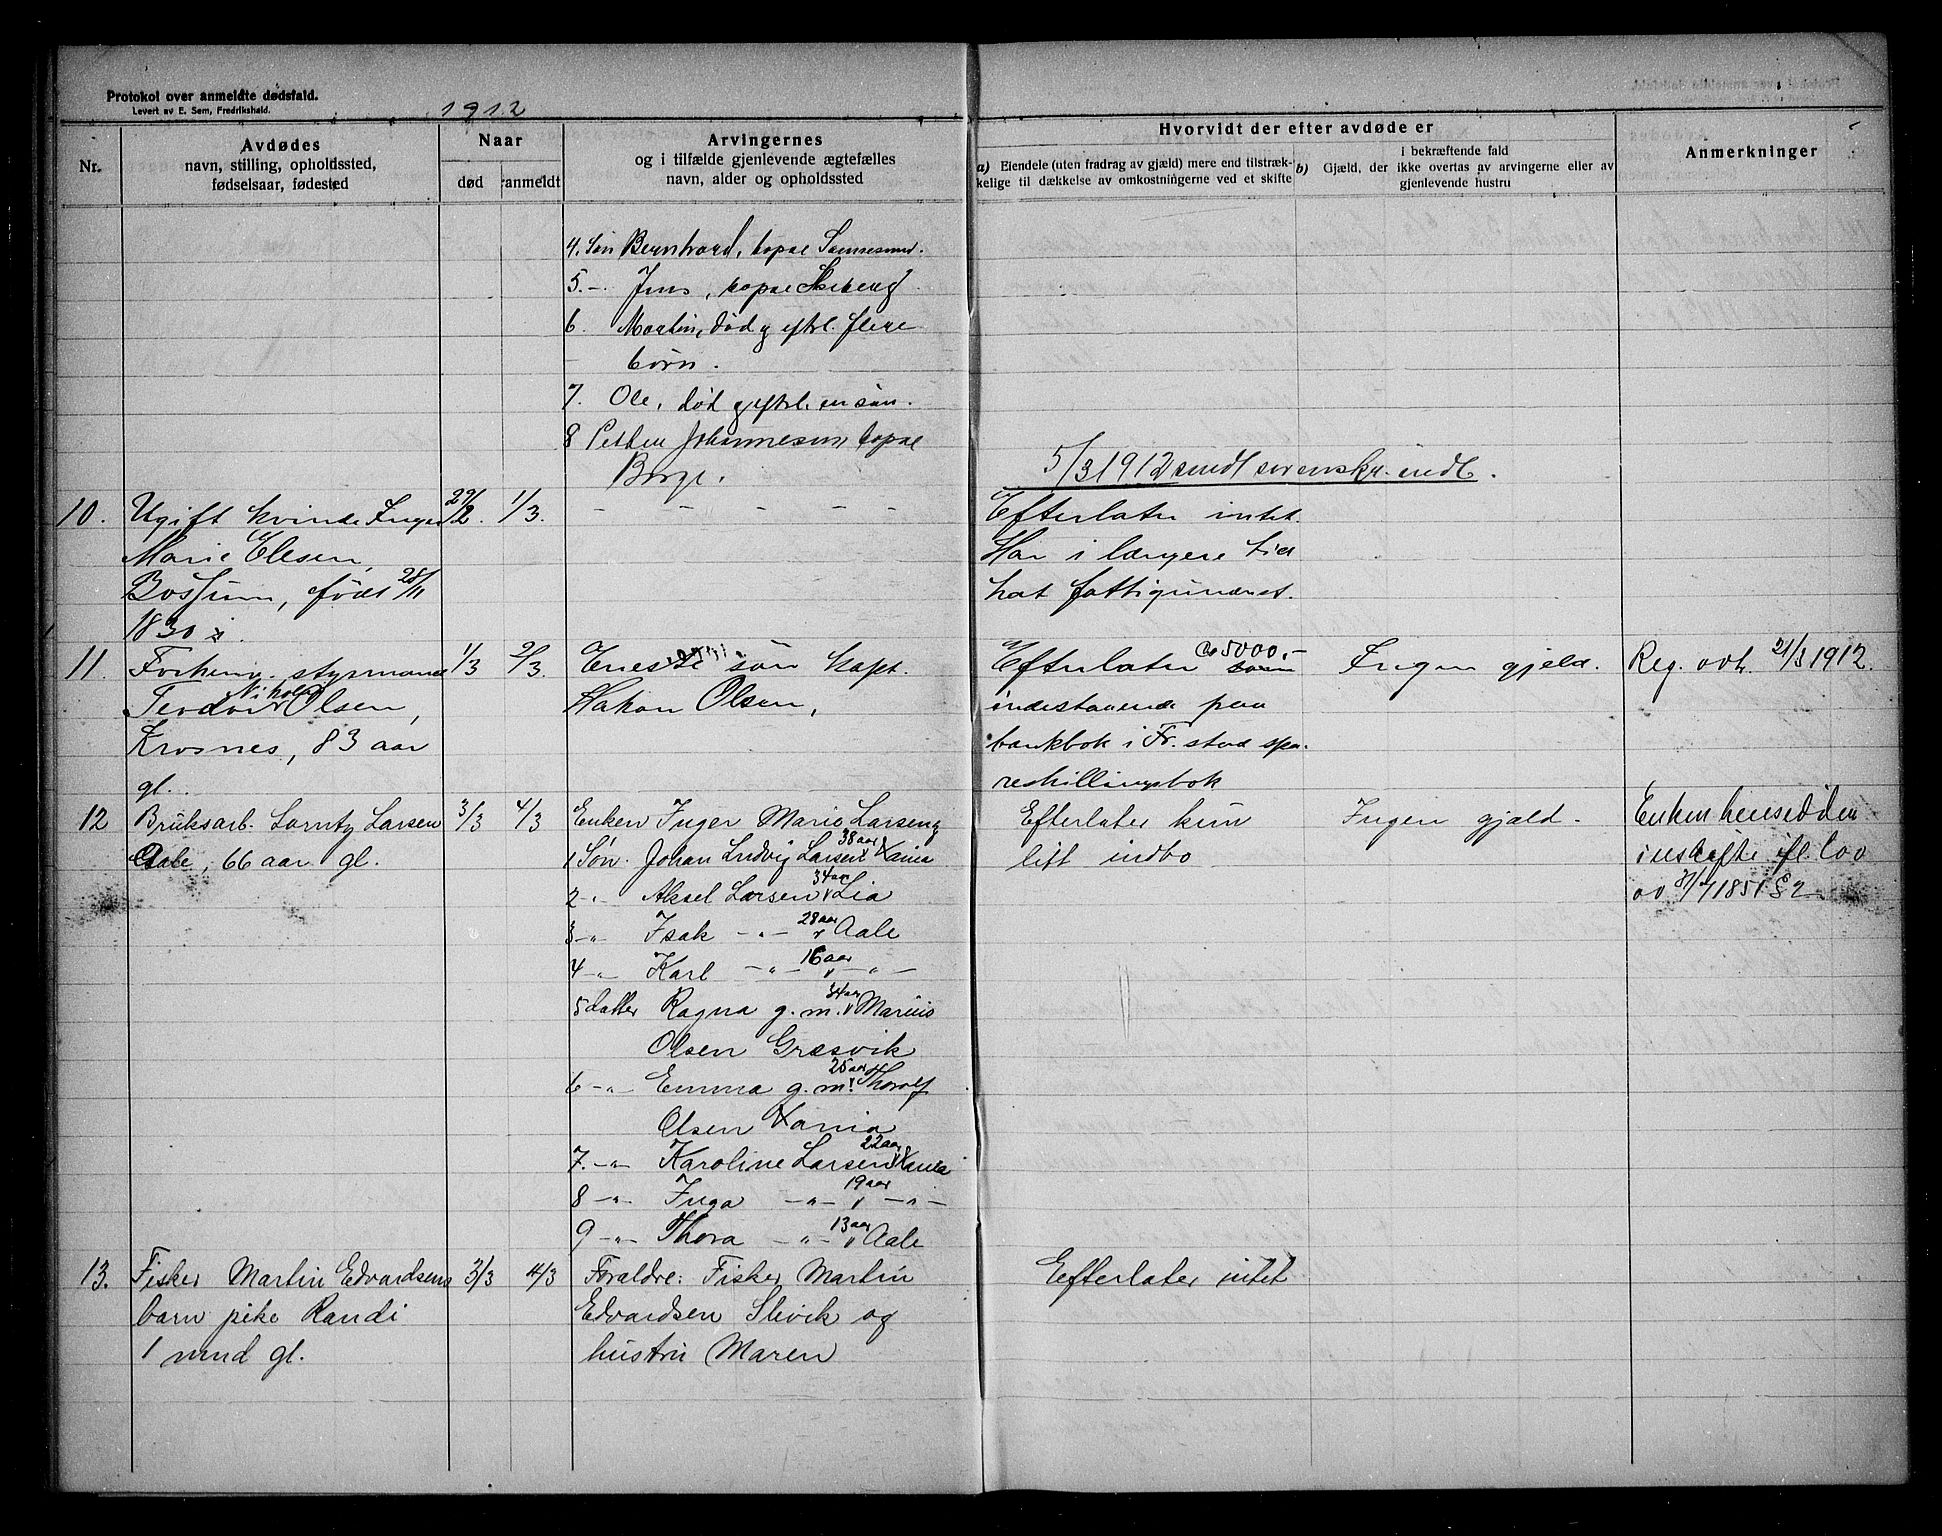 Protokol over anmeldte dødsfald.
Levert av E. Sem, Fredrikshald.
1912
Nr.
Avdødes
navn, stilling, opholdssted,
fødselsaar, fødested
Naar
død
anmeldt
Arvingernes
og i tilfælde gjenlevende ægtefælles
navn, alder og opholdssted
Hvorvidt der efter avdøde er
a) Eiendele (uten fradrag av gjæld) mere end tilstræk-
kelige til dækkelse av omkostningerne ved et skifte
i bekræftende fald
b) Gjæld, der ikke overtas av arvingerne eller av
gjenlevende hustru
Anmerkninger
4. Søn Bernhard, bopæl
5. -- Jens, bopæl Skiberg
6 Martin, død og eftrl. flere
børn.
7. Ole, død og eftrl. en søn.
8 Petter Johannesen, bopæl
Borge.
5/3 1912 sendt sorenskr. indb.
10. Ugift kvinde Inger 29/2. 1/3. - - - - -
Marie Olsen,
Bossum, født 28/11
1830 i.
Efterlater intet.
Har i længere tid
hat fattigunderst.
11. Forhenv. styrmand 1/3 2/3. Eneste søn kapt.
Teodor Nikolai Olsen,
Krosnes, 83 aar
gl.
Hakon Olsen,
Efterlater 5000,- som
indestaaende paa
bankbok i Fr.stad spa-
reskillingsbok
Ingen gjeld.
Reg. avh. 21/3 1912.
12 Bruksarb. Lorntz Larsen 3/3 4/3 Enken Inger Marie Larsen,
Aale, 66 aar gl.
1 Søn. Johan Ludvig Larsen 38 aar
2 -"- Aksel Larsen 34 aar Lia
3 -"- Isak -"- 28 aar Aale
4 -"- Karl -"- 16 aar -"-
5 datter Ragna g. m. 34 aar Marius
Olsen Græsvik
6 -"- Emma g. m. 25 aar Thorolf
Olsen
7. -"- Karoline Larsen 22 aar
8 -"- Inga -"- 19 aar -"-
9 -"- Thora -"- 13 aar Aale
Efterlater kun
litt indbo
Ingen gjæld.
Enken hensidden
i uskifte ifl. lov
av 1851 § 2
13. Fisker Martin Edvardsens 3/3 4/3 Foraldre: Fisker Martin
barn pike Randi
1 mnd gl.
Edvardsen Slevik og
hustru Maren
Efterlater intet